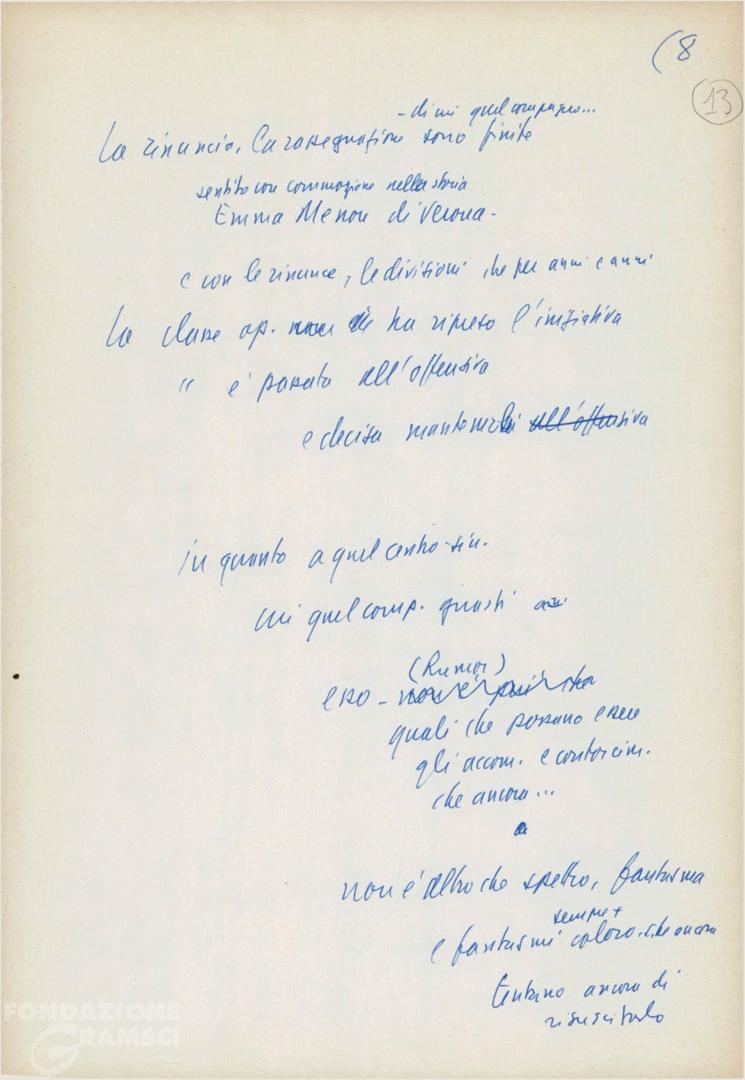 (8
13
- di cui quel compagno...
La rinuncia, la rassegnazione sono finite
sentito con commozione nella storia
Emma Menon di Verona -
e con le rinunce, le divisioni che per anni e anni
La classe op. ha ripreso l'iniziativa
" è passata all'offensiva
e decisa mantenerla all'offensiva
in quanto a quel centro-sin.
cui quel comp. quasi
(Rumor)
esso - non è più che
quali che possano essere
gli accom. e contorcim.
che ancora...
non è altro che spettro, fantasma
sempre +
e fantasmi coloro che ancora
tentano ancora di
risuscitarlo
FONDAZIONE
GRAMSCI